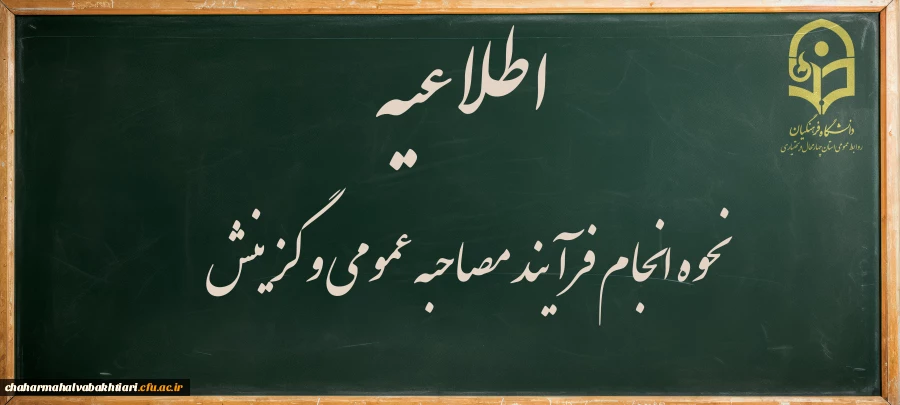 اطلاعیه
نحوه انجام فرآیند مصاحبه عمومی و گزینش
دانشگاه فرهنگیان
روابط عمومی استان چهارمحال و بختیاری
chaharmahalvabakhtiari.cfu.ac.ir